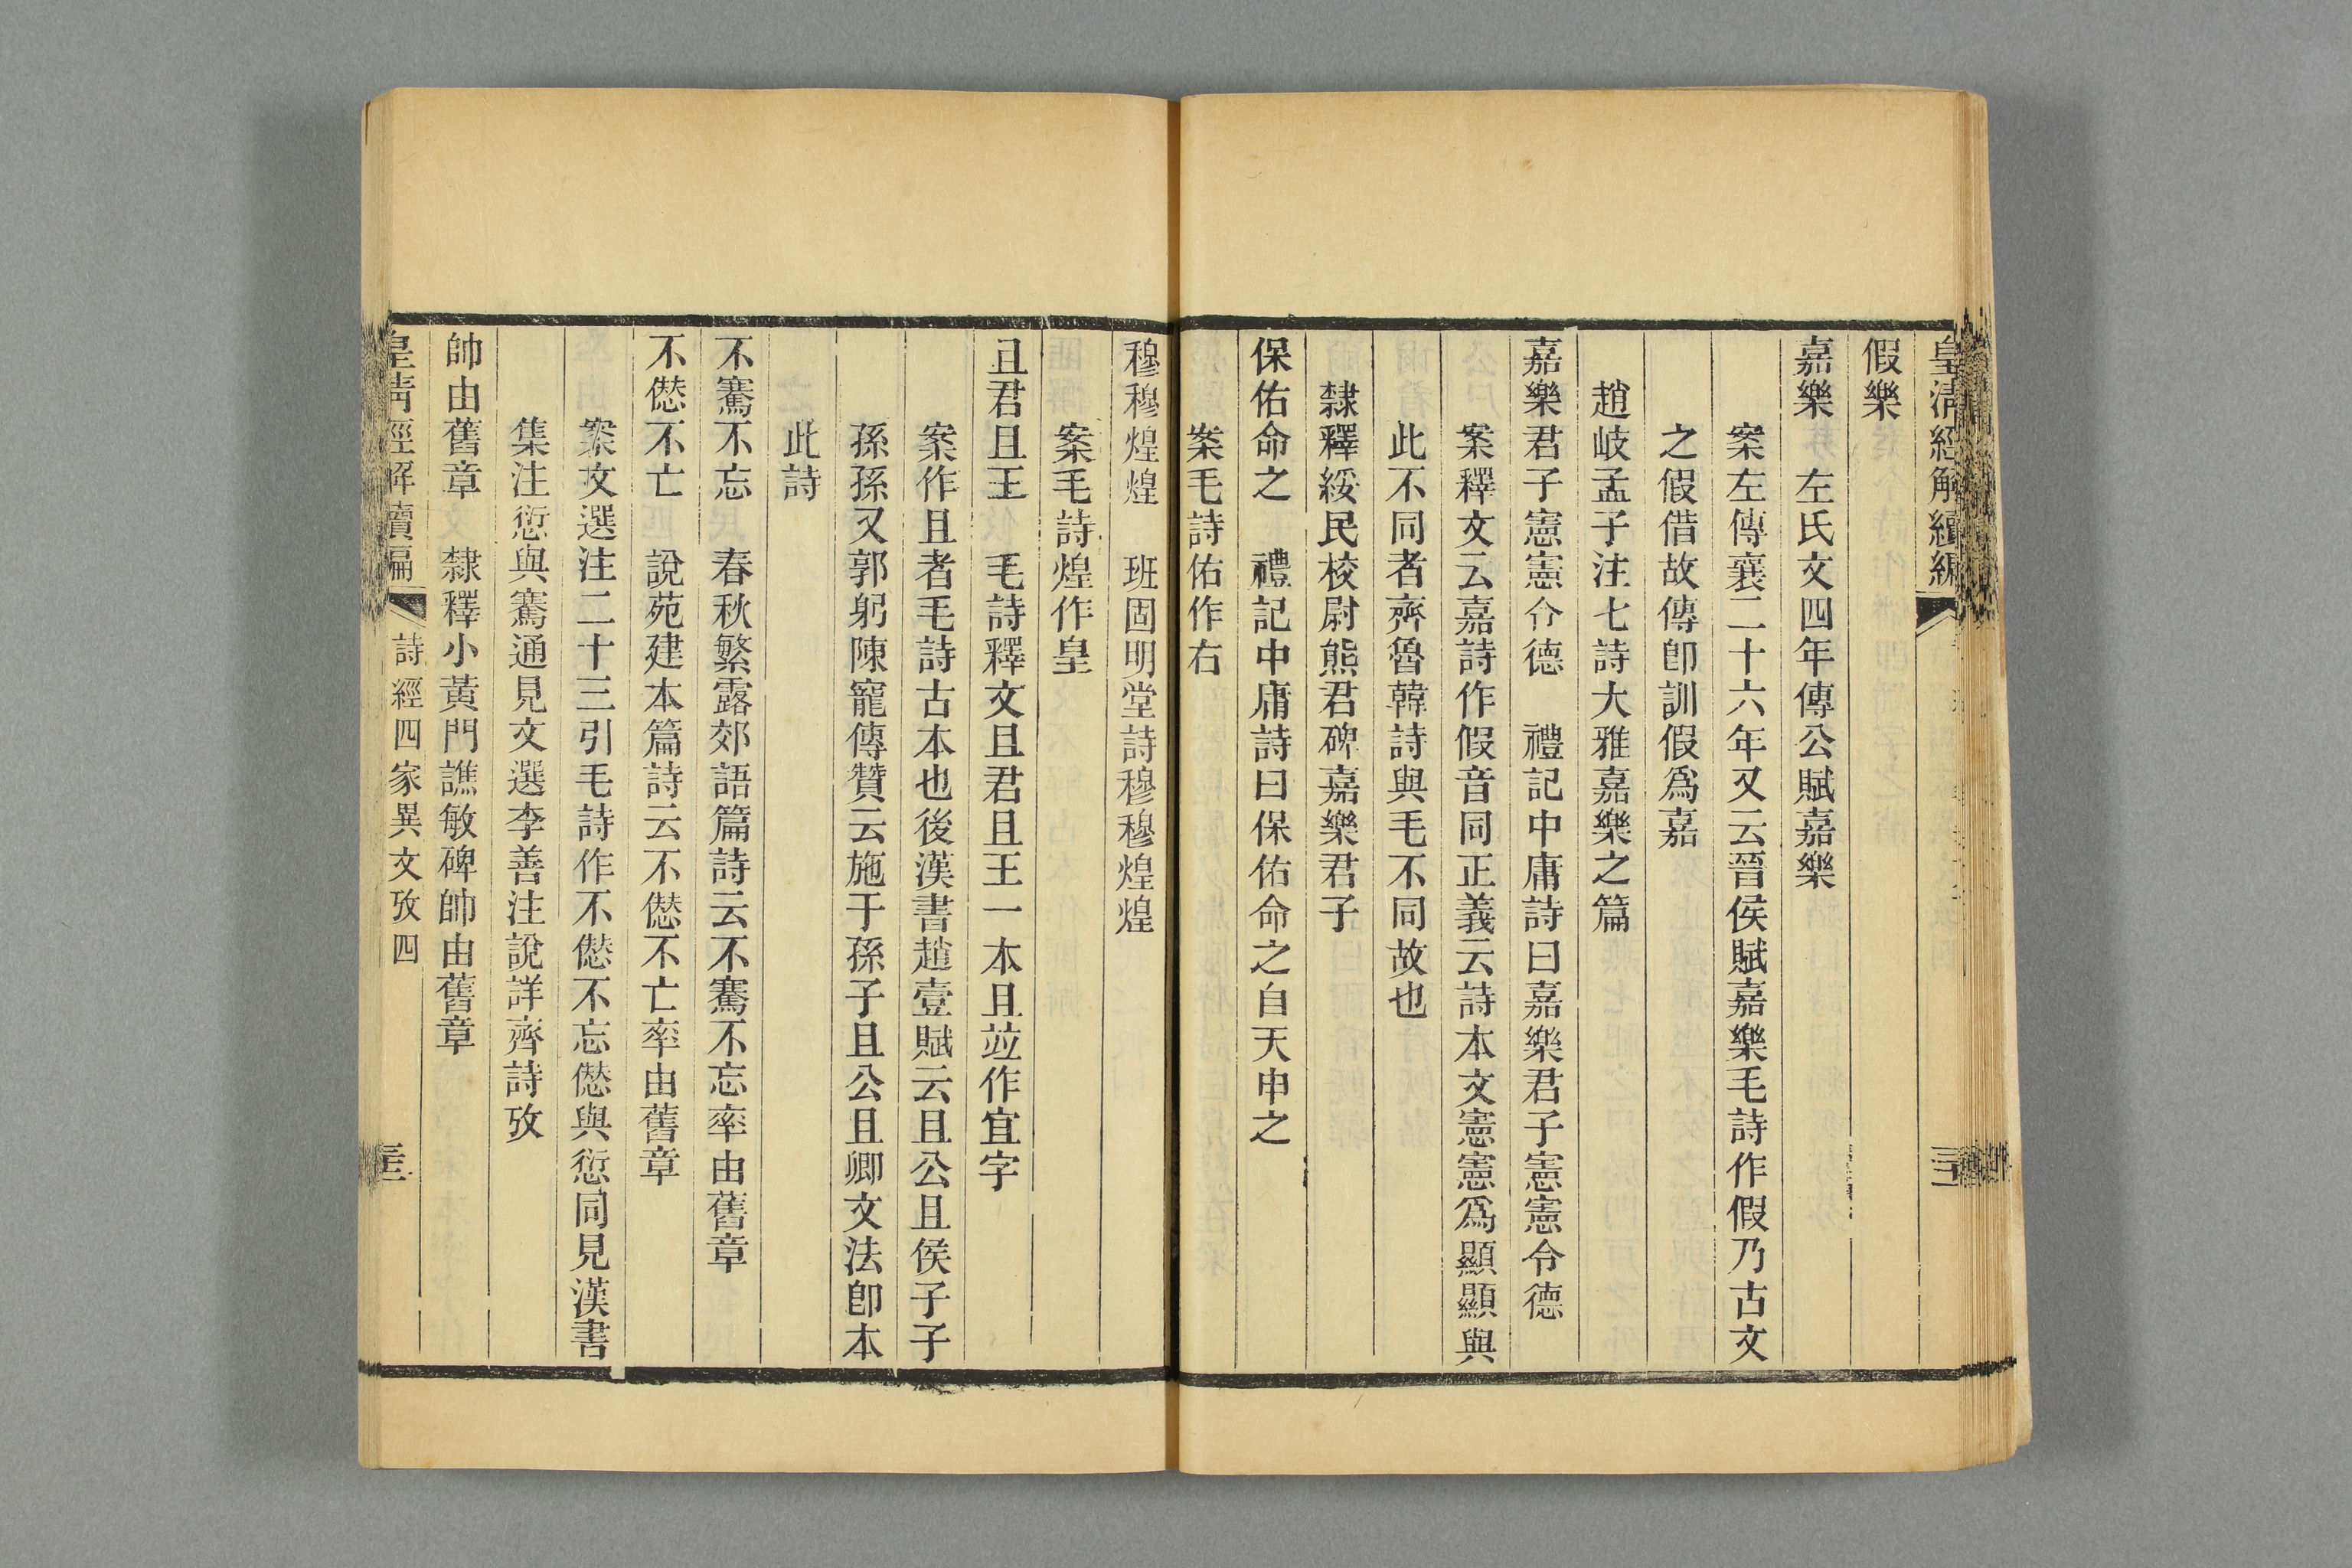 皇清經解續編
假樂
嘉樂　左氏文四年傳公賦嘉樂
案左傳襄二十六年又云晉侯賦嘉樂毛詩作假乃古文
之假借故傳卽訓假爲嘉
趙岐孟子注七詩大雅嘉樂之篇
嘉樂君子憲憲令德　禮記中庸詩曰嘉樂君子憲憲令德
案釋文云嘉詩作假音同正義云詩本文憲憲爲顯顯與
此不同者齊魯韓詩與毛不同故也
隸釋綏民校尉熊君碑嘉樂君子
保佑命之　禮記中庸詩曰保佑命之自天申之
案毛詩佑作右
穆穆煌煌　班固明堂詩穆穆煌煌
案毛詩煌作皇
且君且王　毛詩釋文且君且王一本且竝作宜字
案作且者毛詩古本也後漢書趙壹賦云且公且侯子子
孫孫又郭躬陳寵傳贊云施于孫子且公且卿文法卽本
此詩
不騫不忘　春秋繁露郊語篇詩云不騫不忘率由舊章
不僁不亡　說苑建本篇詩云不僁不亡率由舊章
案文選注二十三引毛詩作不僁不忘僁與愆同見漢書
集注愆與騫通見文選李善注說詳齊詩攷
帥由舊章　隸釋小黃門譙敏碑帥由舊章
皇清經解續編　詩經四家異文攷四